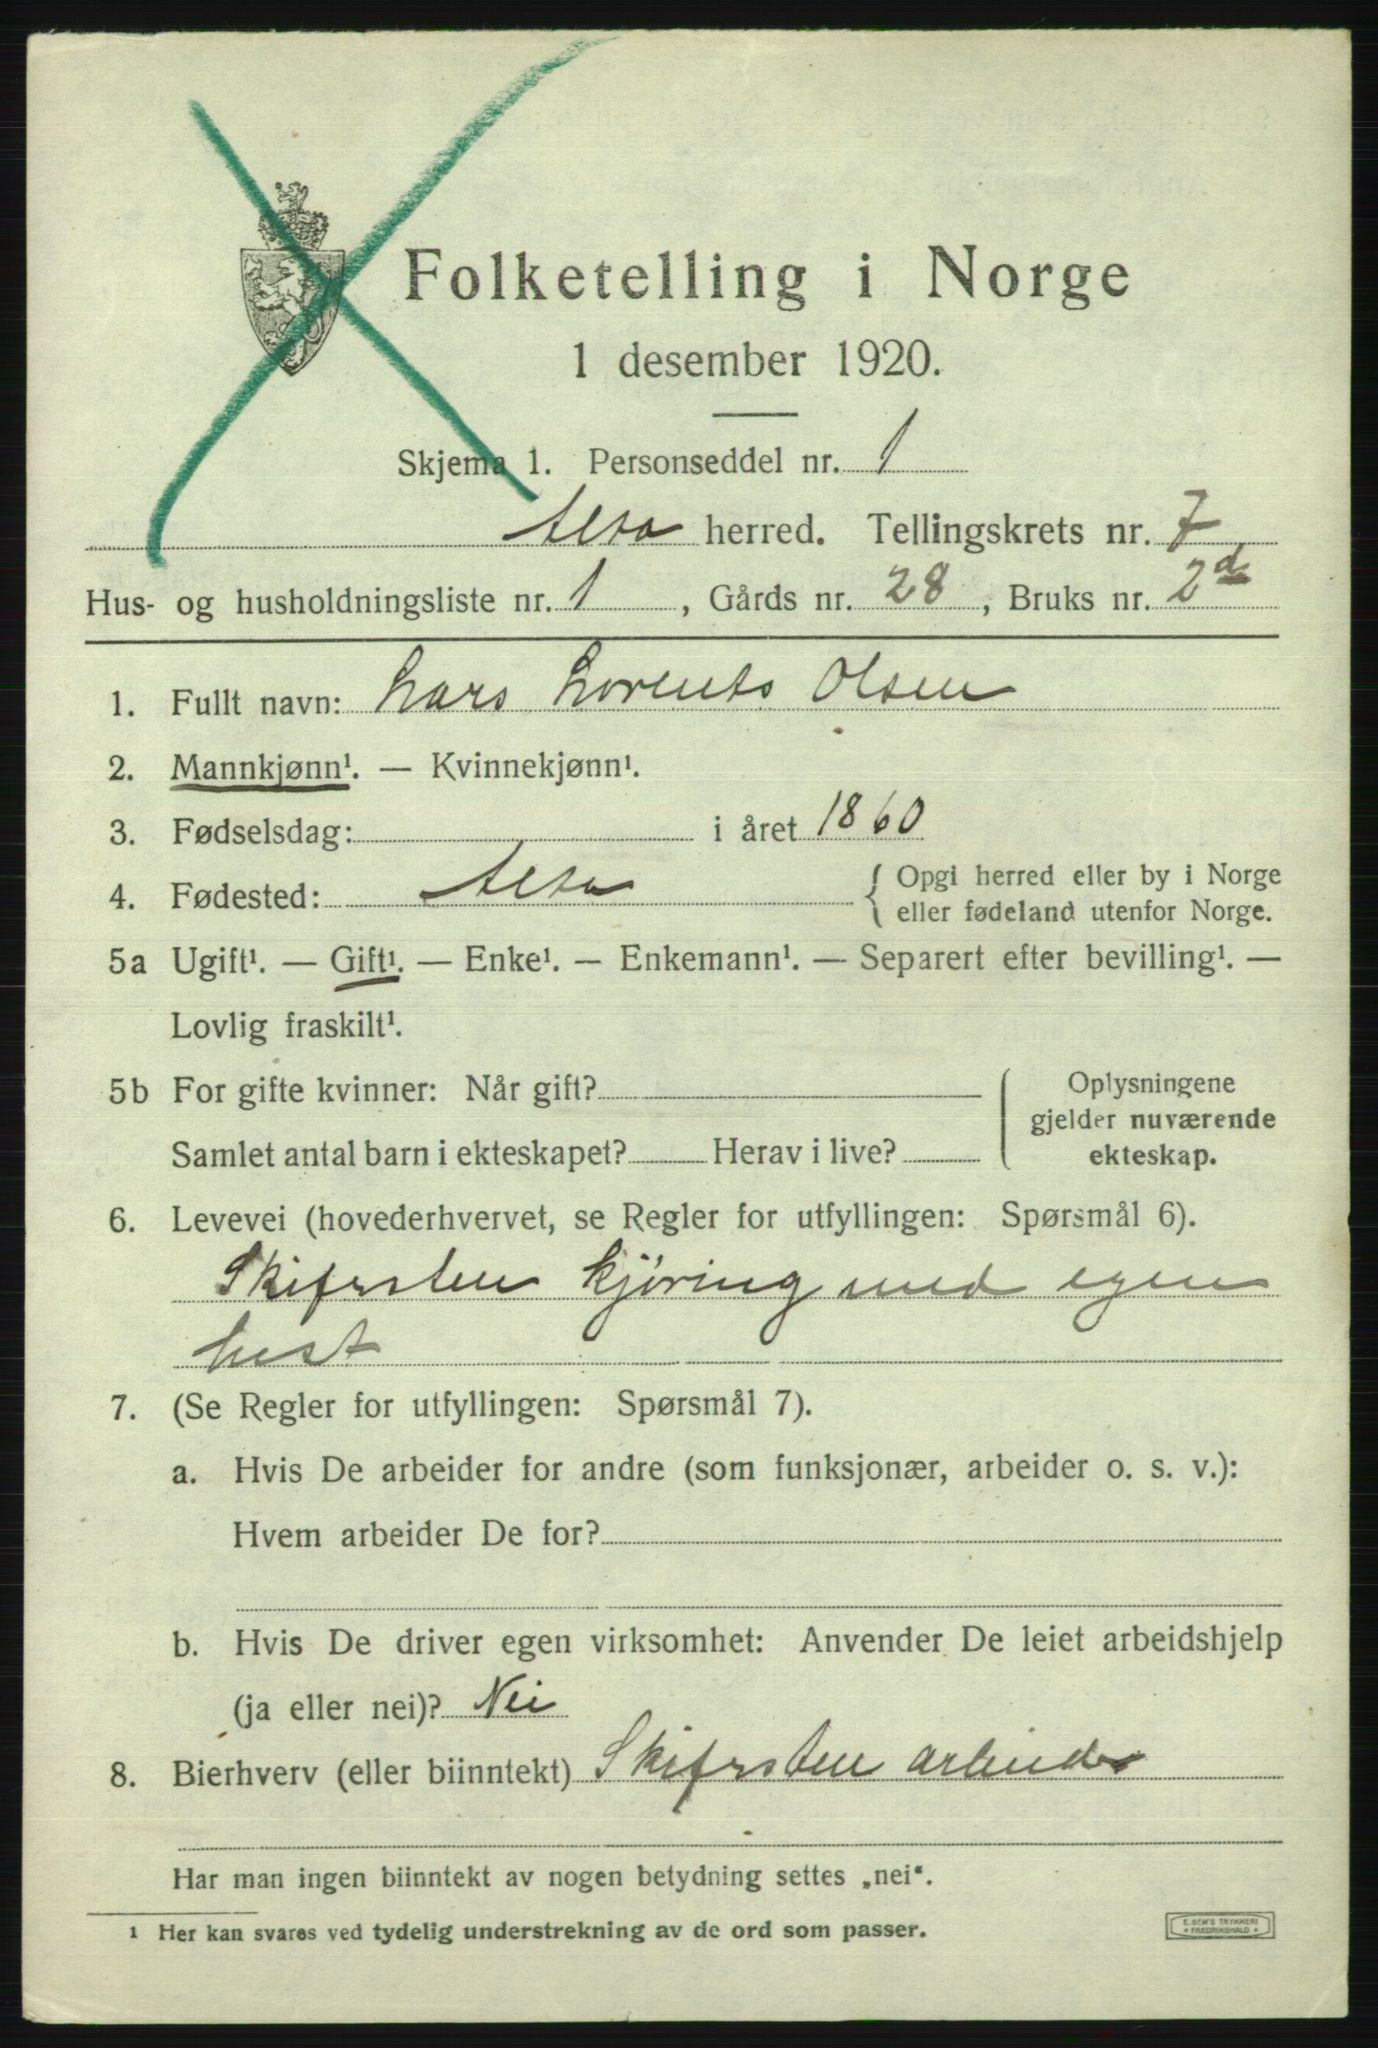 Folketelling i Norge
1 desember 1920.
Skjema 1. Personseddel nr. 1
Alta herred. Tellingskrets nr. 7
Hus- og husholdningsliste nr. 1, Gårds nr. 28, Bruks nr. 2d
1. Fullt navn: Lars Lorents Olsen
2. Mannkjønn¹. — Kvinnekjønn¹.
3. Fødselsdag: i året 1860
4. Fødested: Alta { Opgi herred eller by i Norge
eller fødeland utenfor Norge.
5a Ugift¹. — Gift¹. — Enke¹. — Enkemann¹. — Separert efter bevilling¹. —
Lovlig fraskilt¹.
5b For gifte kvinner: Når gift? Oplysningene
gjelder nuværende
Samlet antal barn i ekteskapet? Herav i live? ekteskap.
6. Levevei (hovederhvervet, se Regler for utfyllingen: Spørsmål 6).
Skifersten kjøring med egen
hest
7. (Se Regler for utfyllingen: Spørsmål 7).
a. Hvis De arbeider for andre (som funksjonær, arbeider o. s. v.):
Hvem arbeider De for?
b. Hvis De driver egen virksomhet: Anvender De leiet arbeidshjelp
(ja eller nei)? Nei
8. Bierhverv (eller biinntekt) Skifersten arbeider
Har man ingen biinntekt av nogen betydning settes „nei“.
1 Her kan svares ved tydelig understrekning av de ord som passer.
E. SEM'S TRYKKERI
* FREDRIKSHALD *